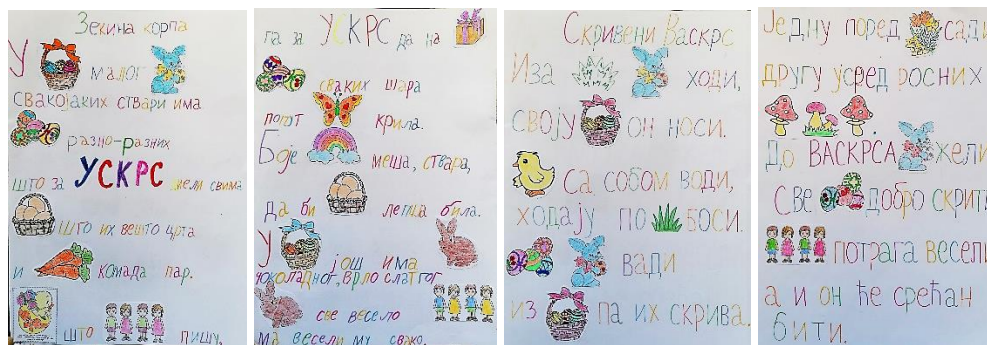 Зекина корпа
У малог
свакојаких ствари има
разно-разних
што за УСКРС жели свима
што их вешто црта
и комада пар.
што пишу,
па за УСКРС да на
сваких шара
попут крила.
Боје меша, ствара,
да би лепша била.
У још има
чоколадног, врло слатког
све весело
ма весели му свако.
Скривени Васкрс
Иза ходи,
своју он носи.
Са собом води,
ходају по боси.
вади
из па их скрива.
Једну поред сади
другу усред росних
.
До ВАСКРСА жели
Све добро скрит
потрага весели
а и он ће срећан
бити.